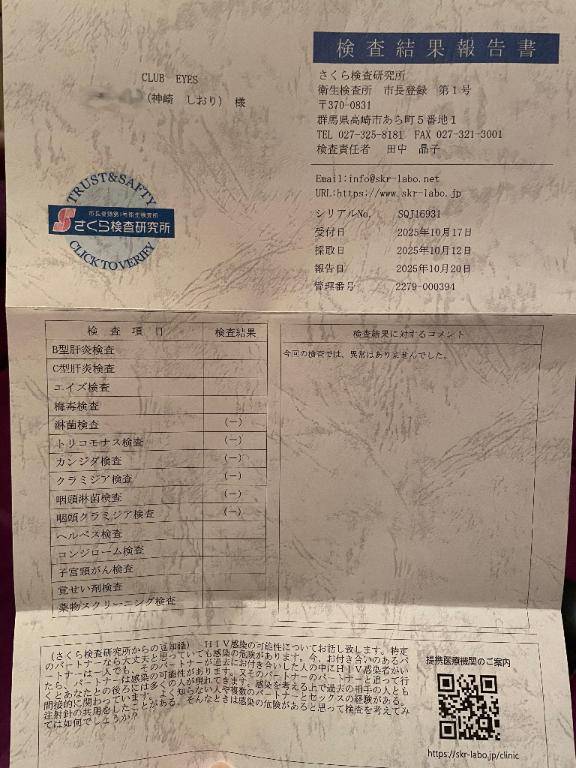 検査結果報告書
CLUB EYES
(神崎 しおり) 様
さくら検査研究所
衛生検査所 市長登録 第1号
〒370-0831
群馬県高崎市あら町5番地1
TEL 027-325-8181 FAX 027-321-3001
検査責任者 田中 晶子
Email:info@skr-labo.net
URL:https://www.skr-labo.jp
TRUST&SAFTY
市長登録第1号衛生検査所
さくら検査研究所
CLICK TO VERIFY
シリアルNo. SQJ16931
受付日 2025年10月17日
採取日 2025年10月12日
報告日 2025年10月20日
管理番号 2279-000394
検査項目 検査結果
B型肝炎検査
C型肝炎検査
エイズ検査
梅毒検査
淋菌検査 (-)
トリコモナス検査 (-)
カンジダ検査 (-)
クラミジア検査 (-)
咽頭淋菌検査 (-)
咽頭クラミジア検査 (-)
ヘルペス検査
コンジローム検査
子宮頸がん検査
覚せい剤検査
薬物スクリーニング検査
検査結果に対するコメント
今回の検査では、異常はありませんでした。
(さくら検査研究所からの豆知識) HIV感染の可能性についてお話し致します。特定
のパートナーなら大丈夫と思っていても感染の危険があります。今、お付き合いのあるパ
ートナーは一人でも、そのパートナーが過去にお付き合いした人の中にHIV感染者がい
たら、パートナーは感染の可能性が
注射針の共用をしたことがある。そんなときは感染の危険があると思って検査を考えてみ
ては如何でしょうか?
提携医療機関のご案内
https://skr-labo.jp/clinic